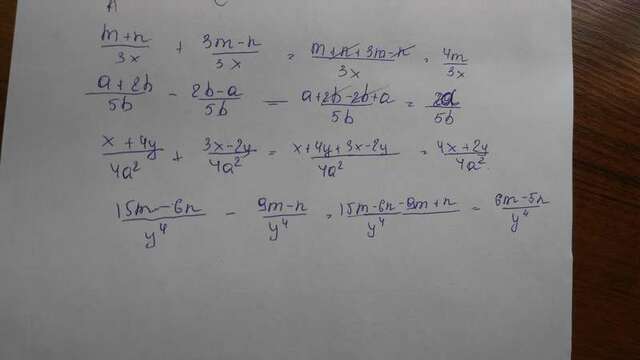 A
(m+n)/3x + (3m-n)/3x = (m+n+3m-n)/3x = 4m/3x
(a+2b)/5b - (2b-a)/5b = (a+2b-2b+a)/5b = 2a/5b
(x+4y)/4a² + (3x-2y)/4a² = (x+4y+3x-2y)/4a² = (4x+2y)/4a²
(15m-6n)/y⁴ - (9m-n)/y⁴ = (15m-6n-9m+n)/y⁴ = (6m-5n)/y⁴